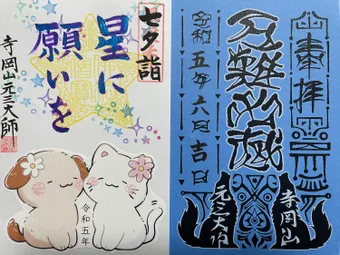 七夕詣
星に
願いを
寺岡山元三大師
令和五年
奉拝
令和五年六月吉日
厄難消滅
寺岡山
元三大師